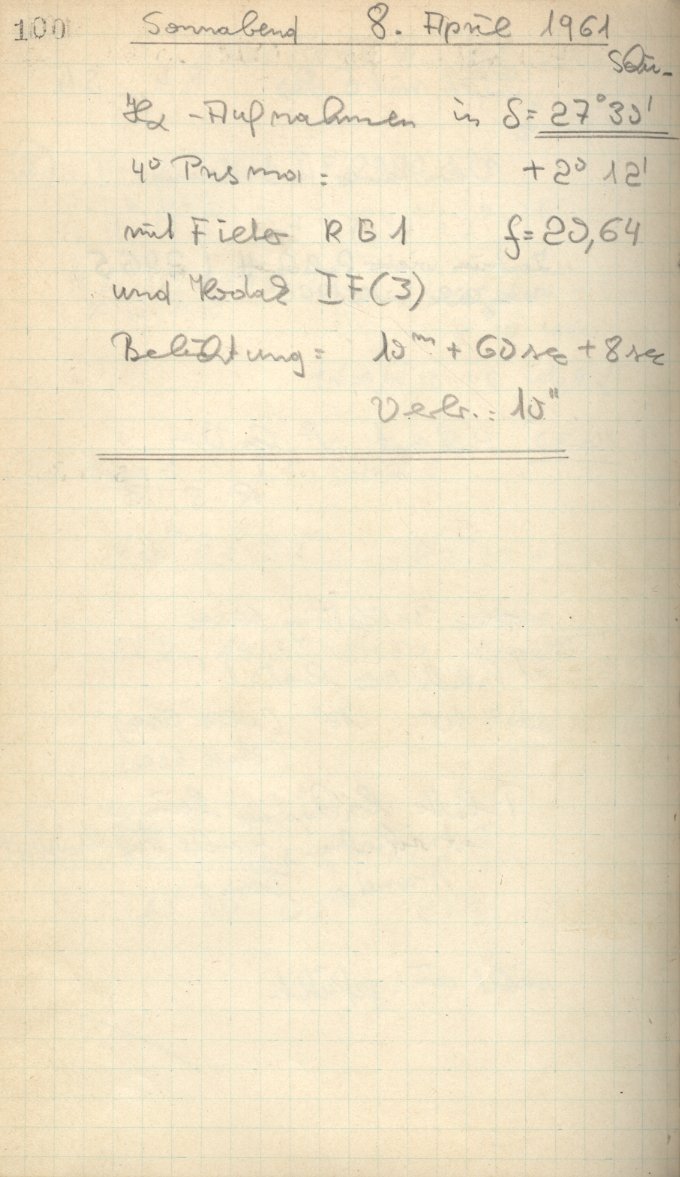 100 Sonnabend 8. April 1961
Hα-Aufnahmen in δ = 27°30'
4° Prisma: +2° 12'
mit Filter RG1 f = 20,64
und Kodak IF(3)
Belichtung = 10ᵐ + 60 sec + 8 sec
Verbr.: 10"